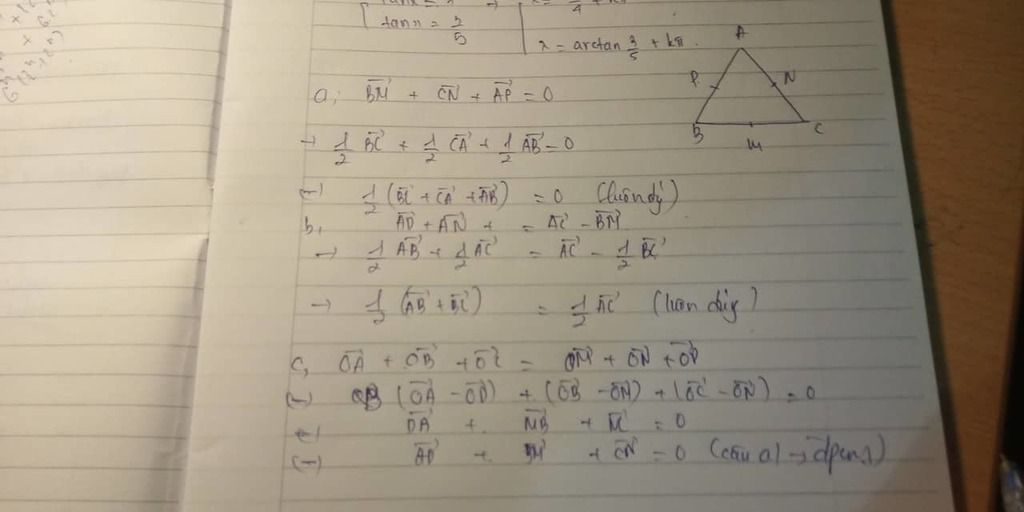 tanx =
tanx = 3/5
x = arctan 3/5 + kπ
A
P N
B M C
a, BM→ + CN→ + AP→ = 0
→ 1/2 BC→ + 1/2 CA→ + 1/2 AB→ = 0
1/2 (BC→ + CA→ + AB→) = 0 (luôn đg)
b, AP→ + AN→ + = AC→ - BM→
→ 1/2 AB→ + 1/2 AC→ = AC→ - 1/2 BC→
→ 1/2 (AB→ + BC→) = 1/2 AC→ (luôn đúg)
c, OA→ + OB→ + OC→ = OM→ + ON→ + OP→
(OA→ - OP→) + (OB→ - OM→) + (OC→ - ON→) = 0
PA→ + MB→ + = 0
AP→ + BM→ + CN→ = 0 (câu a) → đpcm)